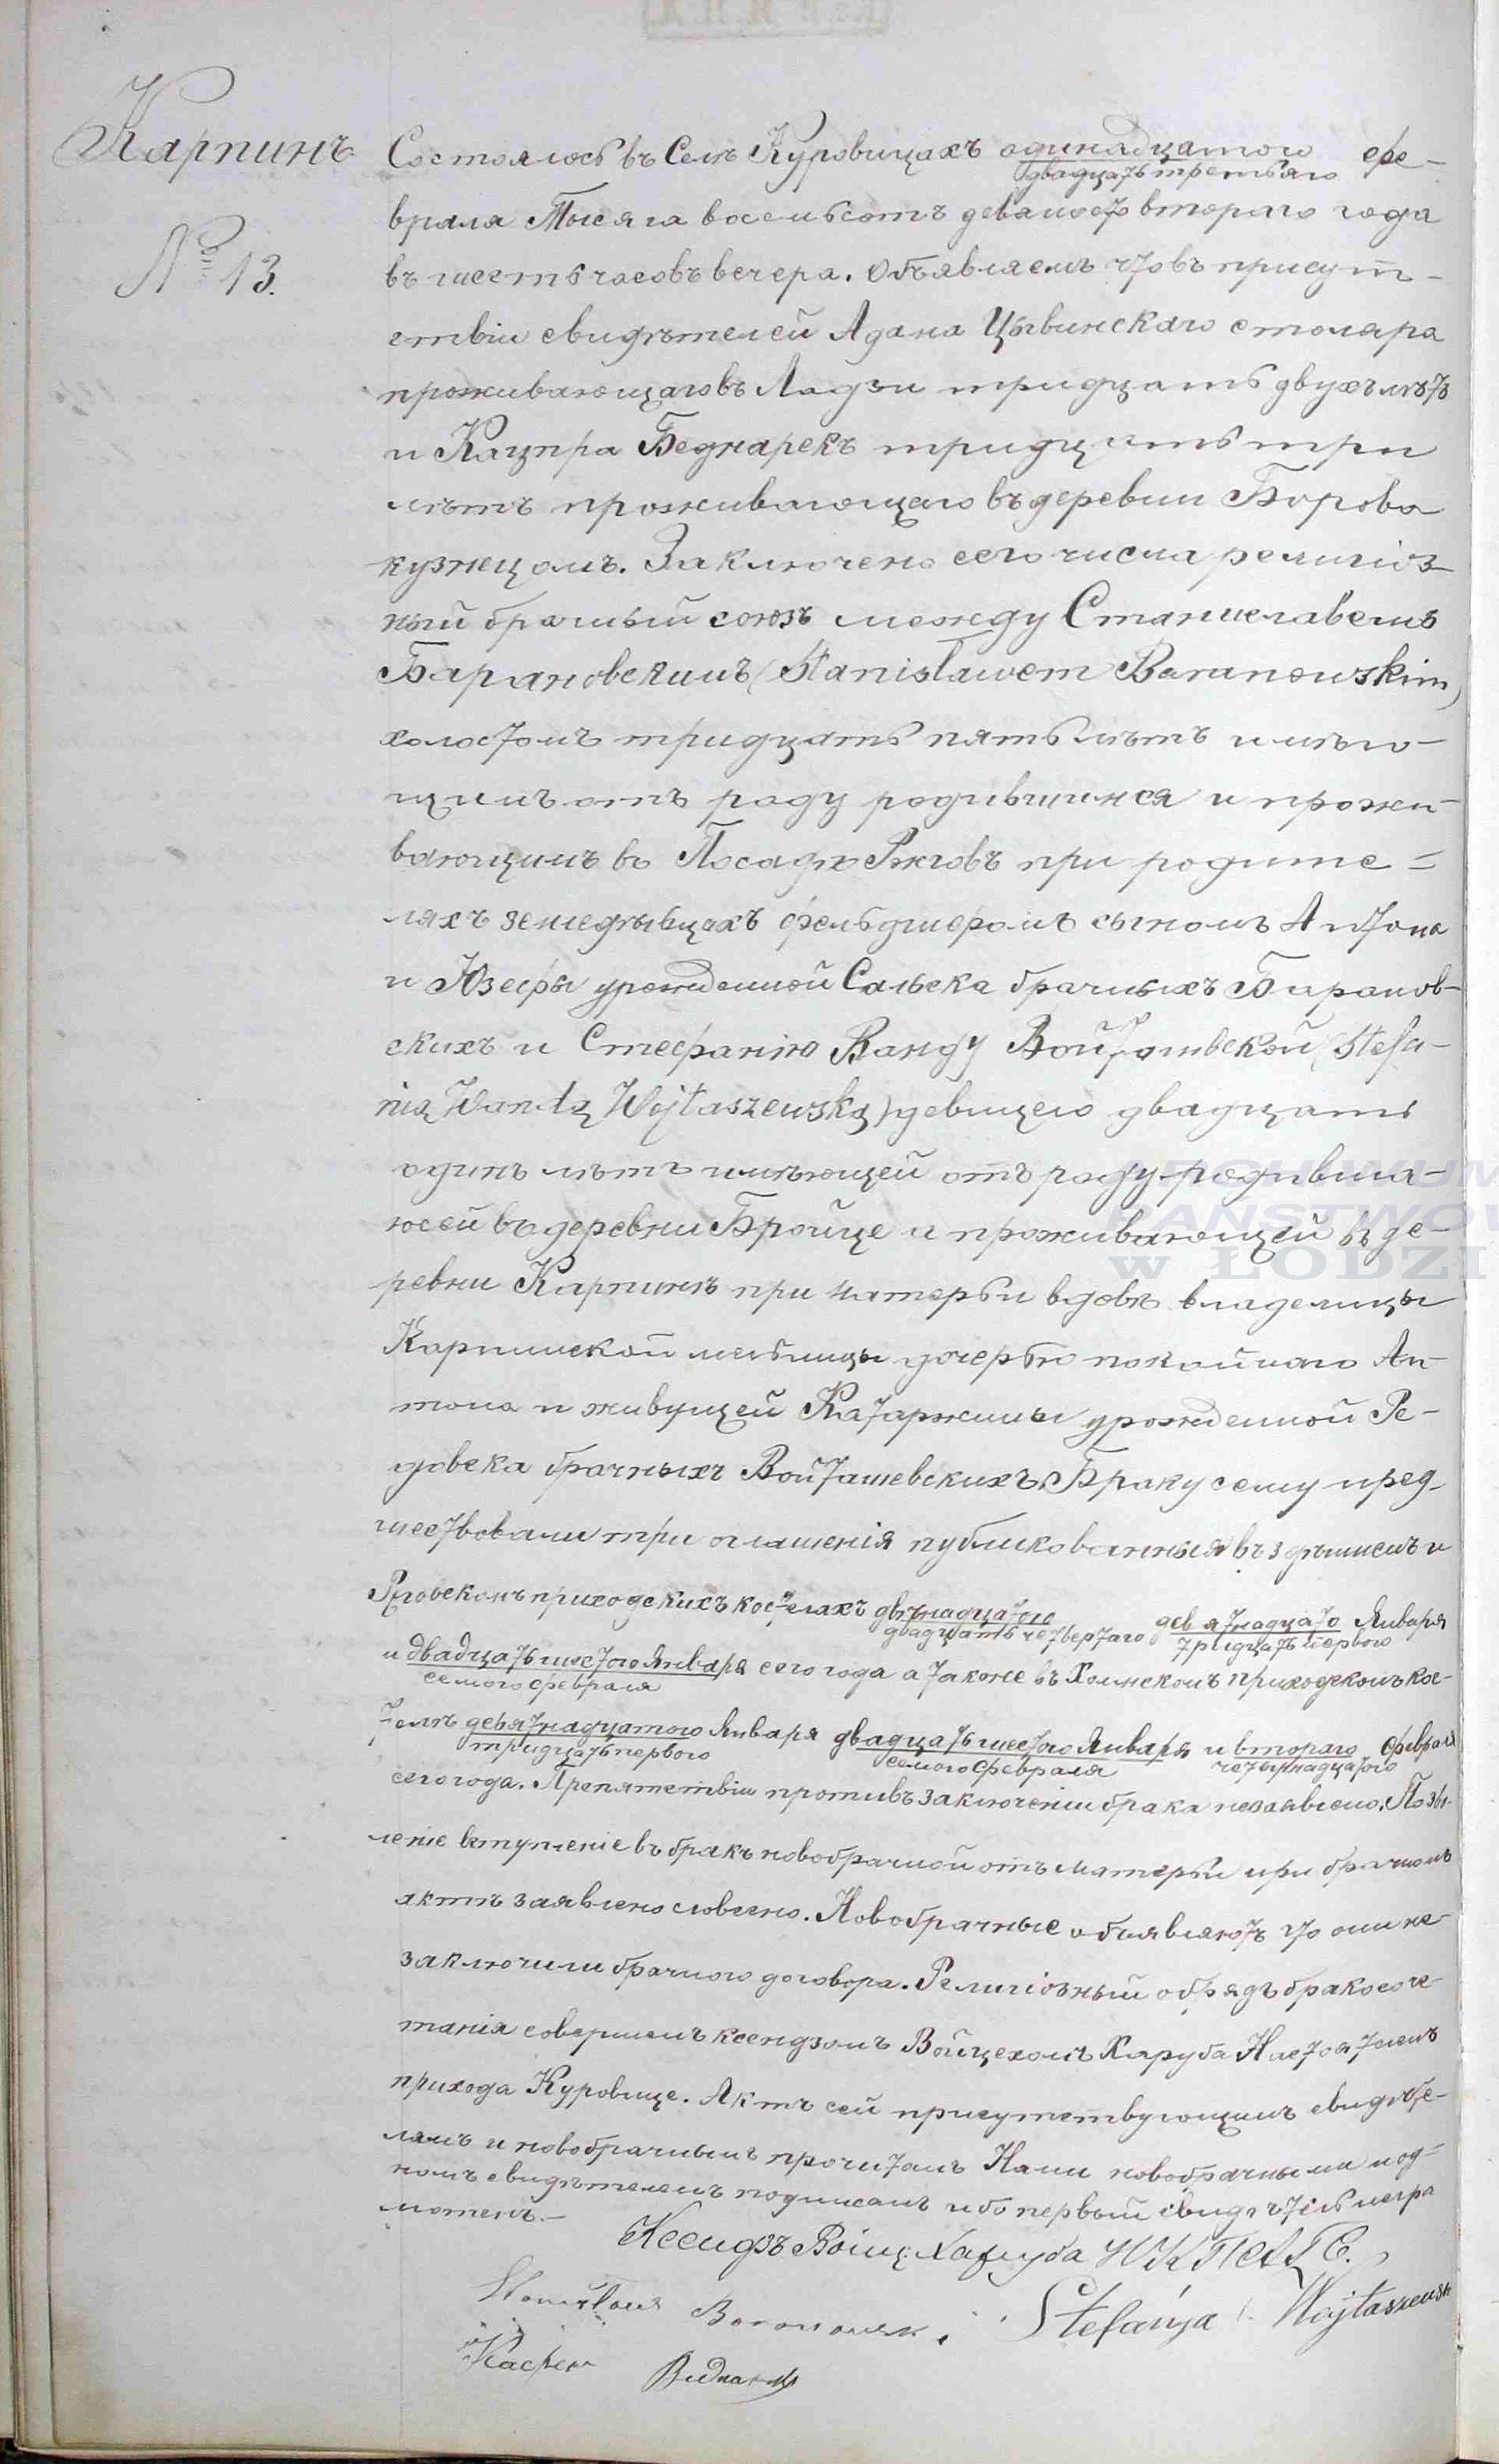 Карпинъ
№ 13.
Состоялось въ Селѣ Куровицахъ одинадцатого фе-
двадцать третьяго
враля Тысяга восемьсотъ девяносто второго года
въ шесть часовъ вечера. Объявляемъ что въ присут-
ствіи свидѣтелей Адама Цывинскаго столяра
проживающаго въ Лодзи тридцать двухъ лѣтъ
и Кацпра Беднарекъ тридцать три
лѣтъ проживающаго въ деревни Борова
кузнецомъ. Заключено сего числа религіоз-
ный брачный союзъ между Станиславемъ
Барановскимъ (Stanisławem Baranowskim)
холостомъ тридцать пять лѣтъ имѣю-
щимъ отъ роду родившимся и прожи-
вающимъ въ Посадѣ Ржговъ при родите-
ляхъ земледѣльцахъ фельдшеромъ сыномъ Антона
и Юзефы урожденной Сальска брачныхъ Баранов-
скихъ и Стефанію Ванду Войташвской (Stefa-
nią Wandą Wojtaszewską) девицею двадцать
одинъ лѣтъ имѣющей отъ роду родивша-
юсей въ деревни Бройце а проживающей въ де-
ревни Карпинъ при матерьи вдовѣ владелицы
Карпинской мельницы дочерью покойнаго Ан-
тона и живущей Катаржины урожденной Ре-
довска брачныхъ Войташевскихъ. Браку сему пред-
шествовали три оглашенія публикованныя въ здѣшнемъ и
Ргowскомъ приходскихъ костелахъ двѣнадцатого девятнадцато Января
двадцать четвертаго тридцать первого
и двадцать шестого Января сего года а также въ Холмскомъ приходскомъ кос-
семого февраля
телѣ девятнадцатого Января двадцать шестого Января и второго февраля
тридцать первого семого февраля четырнадцатого
сего года. Препятствіи противъ заключеніи брака незаявлено. Позв-
леніе вступленіе въ бракъ новобрачной отъ матерьи при брачномъ
актѣ заявлено словесно. Новобрачные объявляютъ что они не-
заключили брачного договора. Религіозный обрядъ бракосоче-
танія совершенъ ксендзомъ Войцехомъ Харуба Настоятелемъ
прихода Куровице. Актъ сей присутствующимъ свидѣте-
лямъ и новобрачнымъ прочитанъ Нами новобрачными и од-
номъ свидѣтелемъ подписанъ ибо первый свидѣтель негра
мотенъ.-
Ксендзъ Войц. Харуба
Stanisław Baranowski Stefanja Wojtaszewsk
Kacper Bednarek